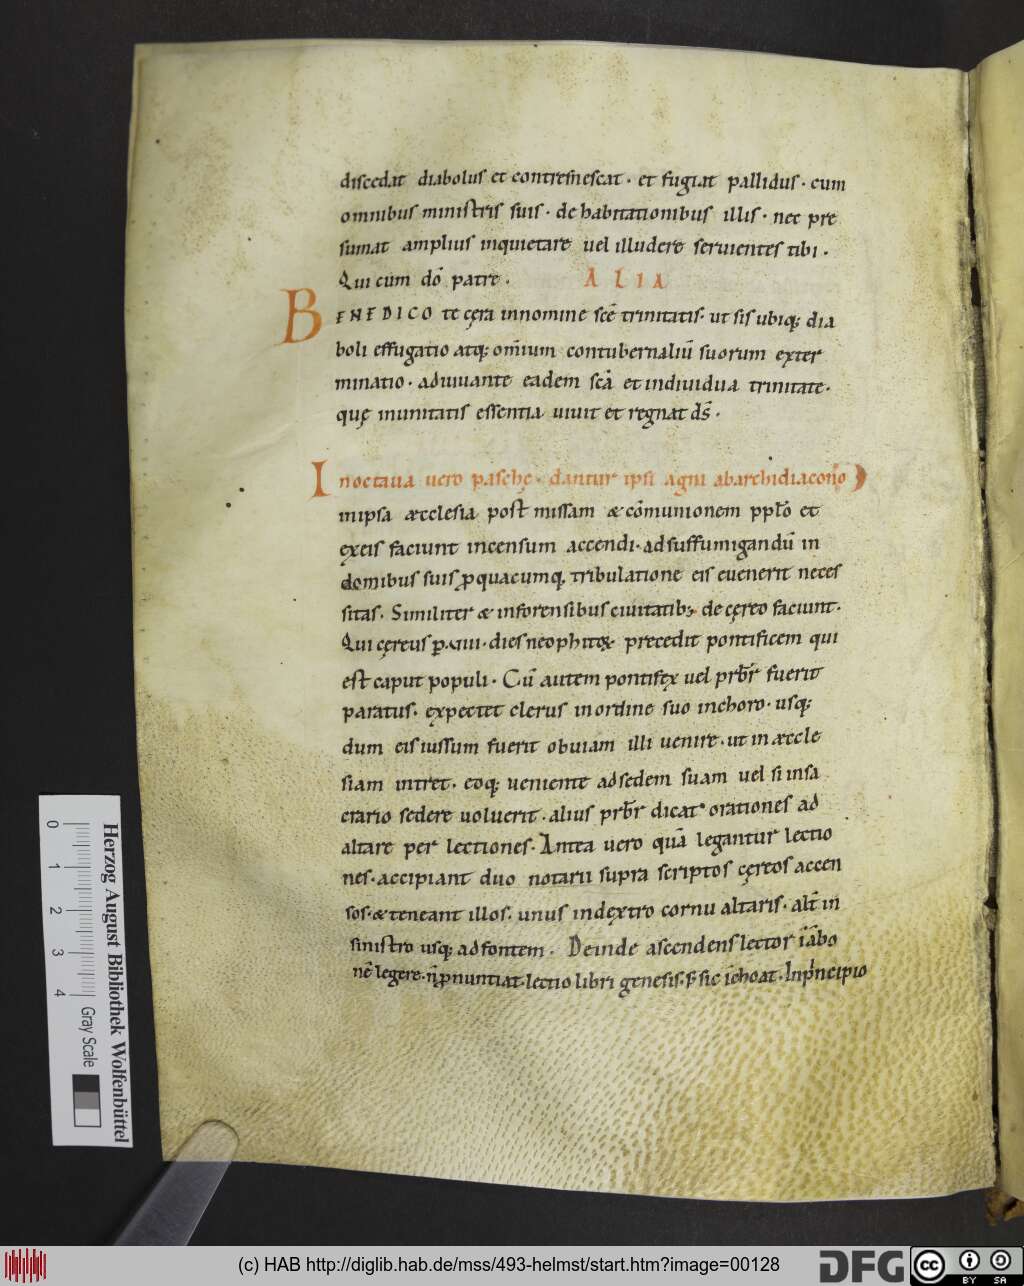 discedat diabolus et contremescat · et fugiat pallidus · cum
omnibus ministris suis · de habitationibus illis · nec pre
sumat amplius inquietare uel illudere seruientes tibi ·
Qui cum dō patre · ALIA
BENEDICO te cęra in nomine scē trinitatis · ut sis ubiq; dia
boli effugatio atq; om̄ium contubernaliū suorum exter
minatio · adiuuante eadem scā et indiuidua trinitate ·
quę in unitatis essentia uiuit et regnat ds̄ ·
In octaua uero paschę · dantur ipsi agni ab archidiacono
in ipsa æcclesia post missam & cōmunionem pplō et
ex eis faciunt incensum accendi · ad suffumigandū in
domibus suis ꝓ quacumq; tribulatione eis euenerit neces
sitas. Similiter & in forensibus ciuitatib; de cęreo faciunt ·
Qui cęreus ꝑ · VIII · dies neophitoꝝ precedit pontificem qui
est caput populi · Cū autem pontifex uel prb̄r fuerit
paratus · expectet clerus in ordine suo in choro · usq;
dum eis iussum fuerit obuiam illi uenire · ut in æccle
siam intret · eoq; ueniente ad sedem suam uel si in sa
crario sedere uoluerit · alius prb̄r dicat orationes ad
altare per lectiones · Antea uero quā legantur lectio
nes · accipiant duo notarii supra scriptos cęreos accen
sos · & teneant illos · unus in dextro cornu altaris · alt̄ in
sinistro usq; ad fontem · Deinde ascendens lector ī ābo
nē legere · n̄ ꝓnuntiat · lectio libri genesis · s; sic īchoat · In principio
0 1 2 3 4
Gray Scale
Herzog August Bibliothek Wolfenbüttel
(c) HAB http://diglib.hab.de/mss/493-helmst/start.htm?image=00128
DFG
cc BY SA